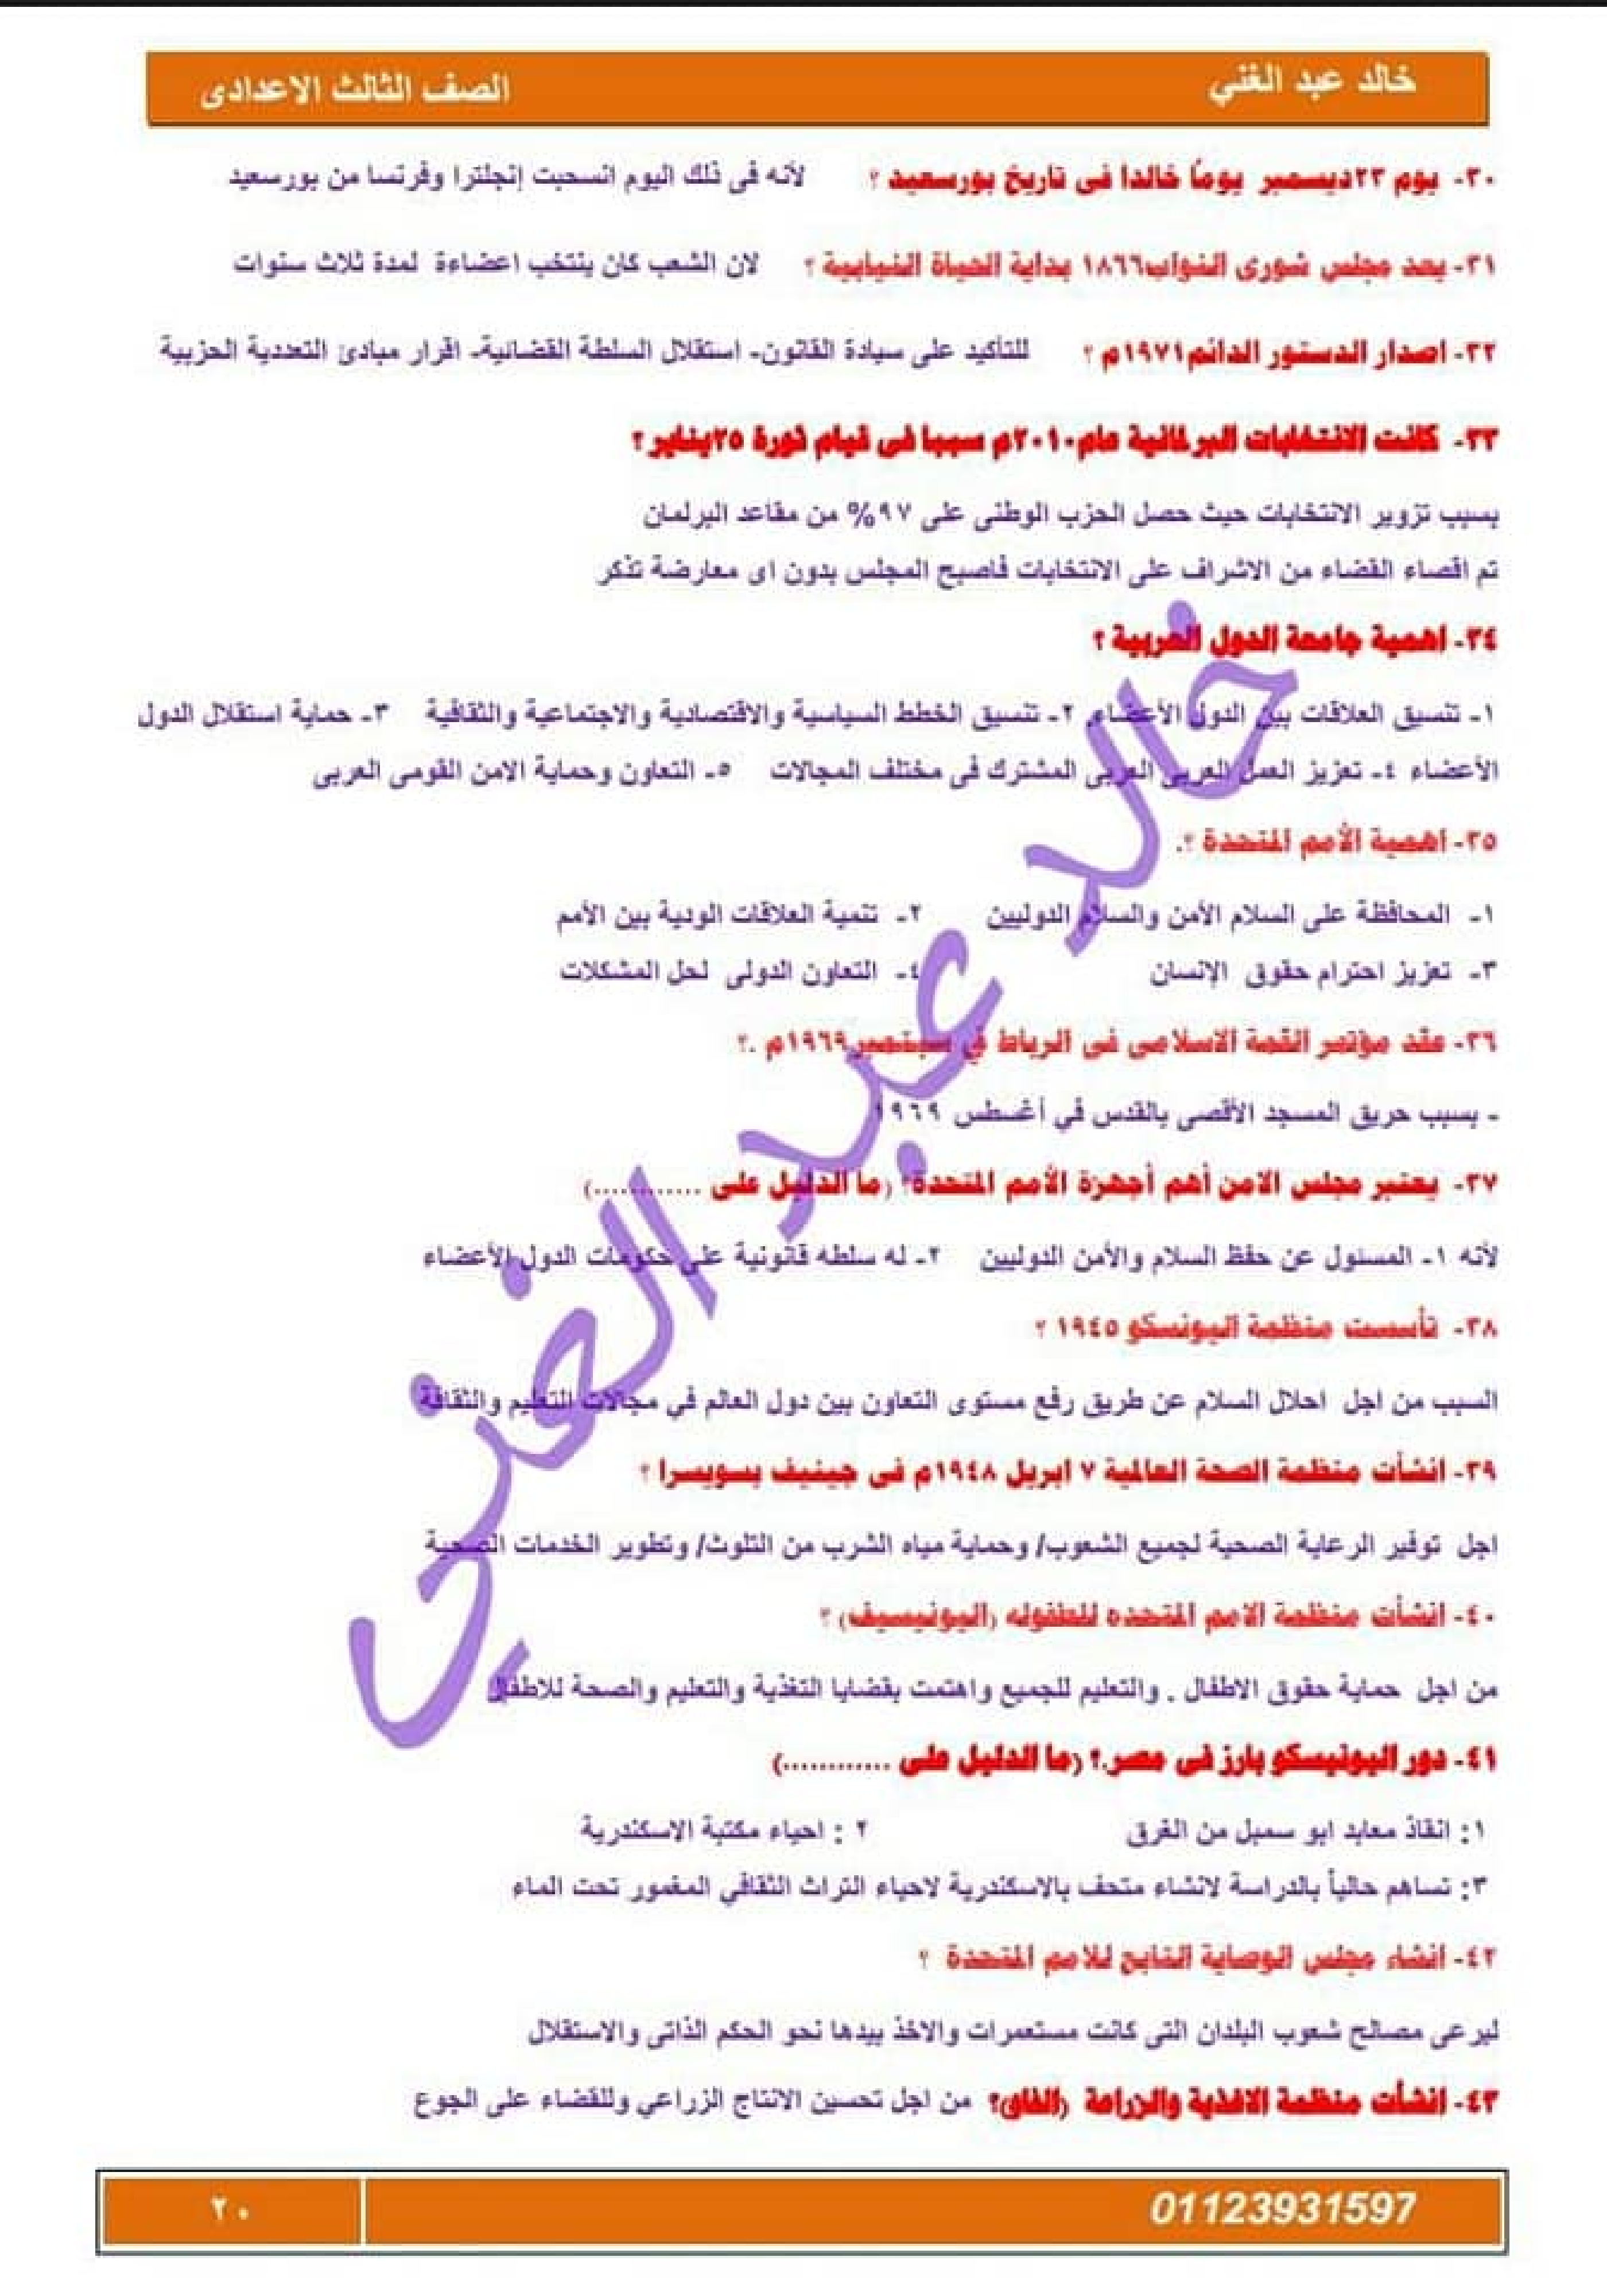 خالد عبد الغني
الصف الثالث الاعدادى
٣٠- يوم ٢٣ديسمبر يومًا خالدا فى تاريخ بورسعيد ؟ لأنه فى ذلك اليوم انسحبت إنجلترا وفرنسا من بورسعيد
٣١- يعد مجلس شورى النواب١٨٦٦ بداية الحياة النيابية ؟ لان الشعب كان ينتخب اعضاءة لمدة ثلاث سنوات
٣٢- اصدار الدستور الدائم١٩٧١م ؟ للتأكيد على سيادة القانون- استقلال السلطة القضائية- اقرار مبادئ التعددية الحزبية
٣٣- كانت الانتخابات البرلمانية عام٢٠١٠م سببا فى قيام ثورة ٢٥يناير ؟
بسبب تزوير الانتخابات حيث حصل الحزب الوطنى على ٩٧% من مقاعد البرلمان
تم اقصاء القضاء من الاشراف على الانتخابات فاصبح المجلس بدون اى معارضة تذكر
٣٤- اهمية جامعة الدول العربية ؟
١- تنسيق العلاقات بين الدول الأعضاء ٢- تنسيق الخطط السياسية والاقتصادية والاجتماعية والثقافية ٣- حماية استقلال الدول
الأعضاء ٤- تعزيز العمل العربى العربى المشترك فى مختلف المجالات ٥- التعاون وحماية الامن القومى العربى
٣٥- اهمية الأمم المتحدة ؟.
١- المحافظة على السلام الأمن والسلام الدوليين ٢- تنمية العلاقات الودية بين الأمم
٣- تعزيز احترام حقوق الإنسان ٤- التعاون الدولى لحل المشكلات
٣٦- عقد مؤتمر القمة الاسلامى فى الرباط في سبتمبر١٩٦٩م .؟
- بسبب حريق المسجد الأقصى بالقدس في أغسطس ١٩٦٩
٣٧- يعتبر مجلس الامن أهم أجهزة الأمم المتحدة؟ (ما الدليل على ............)
لأنه ١- المسئول عن حفظ السلام والأمن الدوليين ٢- له سلطه قانونية على حكومات الدول الأعضاء
٣٨- تأسست منظمة اليونسكو ١٩٤٥ ؟
السبب من اجل احلال السلام عن طريق رفع مستوى التعاون بين دول العالم في مجالات التعليم والثقافة
٣٩- انشأت منظمة الصحة العالمية ٧ ابريل ١٩٤٨م فى جينيف بسويسرا ؟
اجل توفير الرعاية الصحية لجميع الشعوب/ وحماية مياه الشرب من التلوث/ وتطوير الخدمات الصحية
٤٠- انشأت منظمة الامم المتحده للطفوله (اليونيسيف) ؟
من اجل حماية حقوق الاطفال . والتعليم للجميع واهتمت بقضايا التغذية والتعليم والصحة للاطفال
٤١- دور اليونيسكو بارز فى مصر.؟ (ما الدليل على ............)
١: انقاذ معابد ابو سمبل من الغرق ٢ : احياء مكتبة الاسكندرية
٣: تساهم حالياً بالدراسة لانشاء متحف بالاسكندرية لاحياء التراث الثقافي المغمور تحت الماء
٤٢- انشاء مجلس الوصاية التابع للامم المتحدة ؟
ليرعى مصالح شعوب البلدان التى كانت مستعمرات والاخذ بيدها نحو الحكم الذاتى والاستقلال
٤٣- انشأت منظمة الاغذية والزراعة (الفاو)؟ من اجل تحسين الانتاج الزراعي وللقضاء على الجوع
خالد عبد الغني
01123931597
٢٠